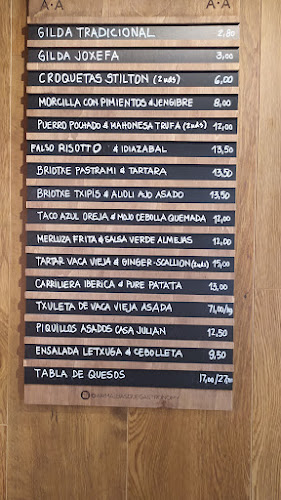 A·A A·A
GILDA TRADICIONAL 2,80
GILDA JOXEFA 3,00
CROQUETAS STILTON (2 uds) 6,00
MORCILLA CON PIMIENTOS & JENGIBRE 8,00
PUERRO POCHADO & MAHONESA TRUFA (2uds) 12,00
FALSO RISOTTO & IDIAZABAL 13,50
BRIOTXE PASTRAMI & TARTARA 13,50
BRIOTXE TXIPIS & ALIOLI AJO ASADO 13,50
TACO AZUL OREJA & MOJO CEBOLLA QUEMADA 12,00
MERLUZA FRITA & SALSA VERDE ALMEJAS 12,00
TARTAR VACA VIEJA & GINGER-SCALLION (2uds) 15,00
CARRILLERA IBERICA & PURE PATATA 13,00
TXULETA DE VACA VIEJA ASADA 71,00/kg
PIQUILLOS ASADOS CASA JULIAN 12,50
ENSALADA LETXUGA & CEBOLLETA 8,50
TABLA DE QUESOS 17,00/27,00